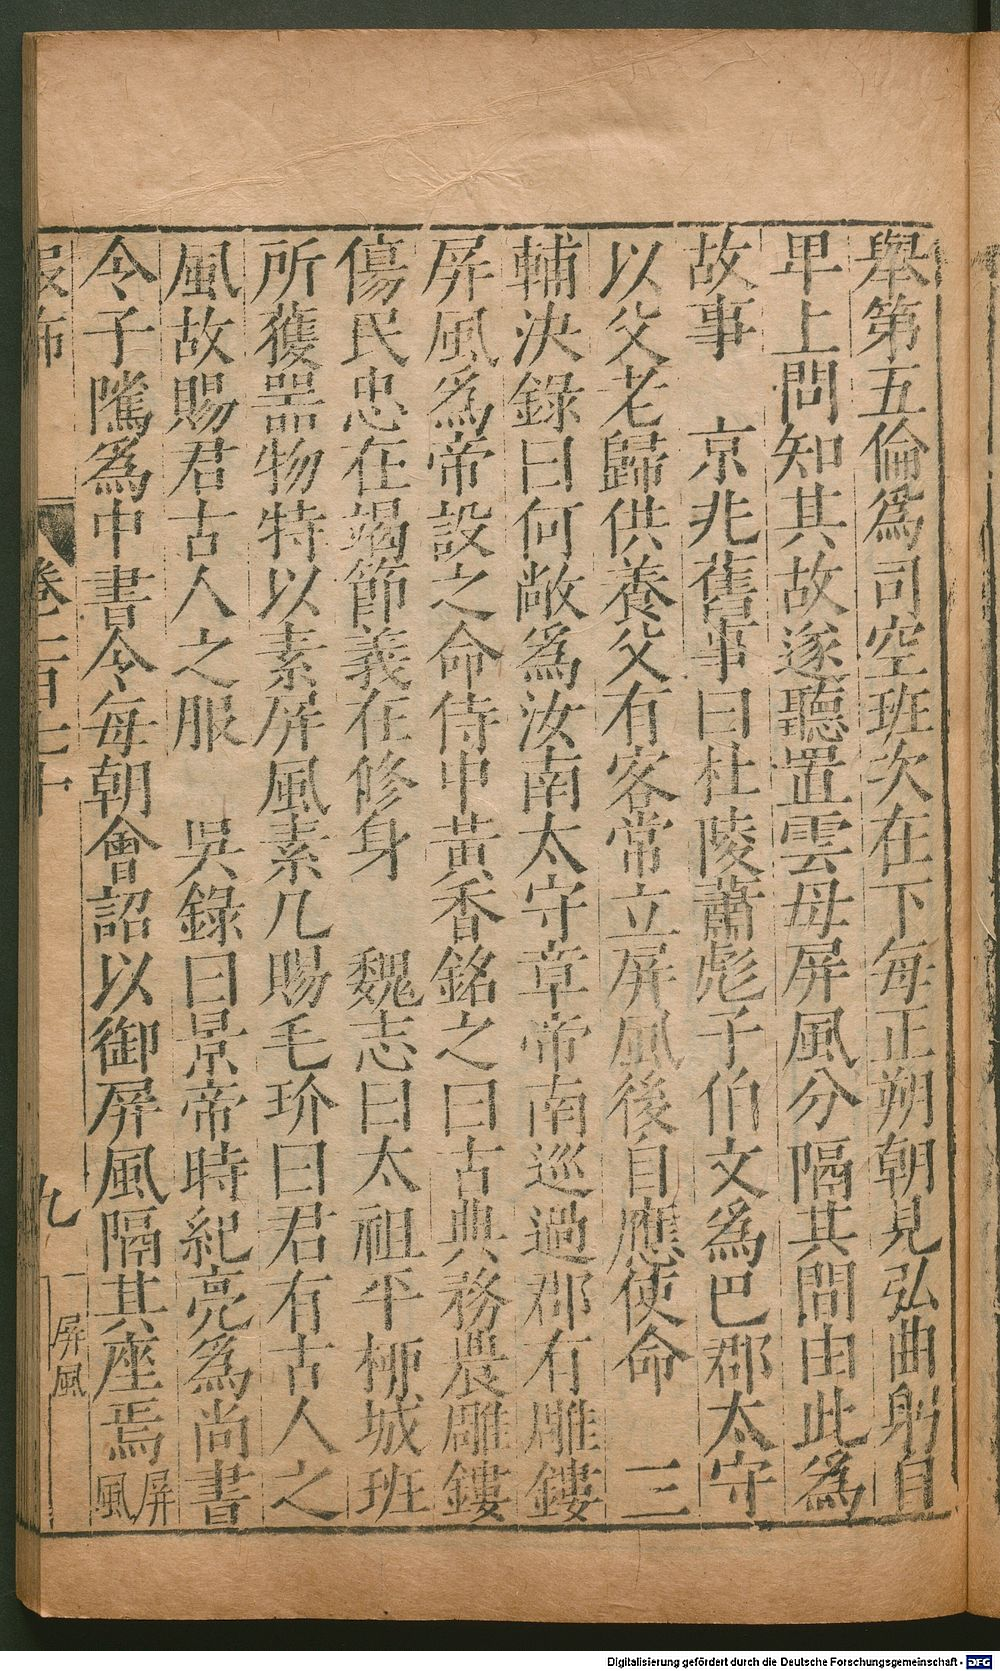 舉第五倫爲司空班次在下每正朔朝見弘曲躬自
卑上問知其故遂聽置雲母屏風分隔其間由此爲
故事　京兆舊事曰杜陵蕭彪子伯文爲巴郡太守
以父老歸供養父有客常立屏風後自應使命　三
輔決錄曰何敞爲汝南太守章帝南巡過郡有雕鏤
屏風爲帝設之命侍中黃香銘之曰古典務農雕鏤
傷民忠在竭節義在修身　魏志曰太祖平柳城班
所獲器物特以素屏風素几賜毛玠曰君有古人之
風故賜君古人之服　吳錄曰景帝時紀亮爲尚書
令子隲爲中書令每朝會詔以御屏風隔其座焉屏風
服飾
卷二百七十
九
屏風
Digitalisierung gefördert durch die Deutsche Forschungsgemeinschaft - DFG